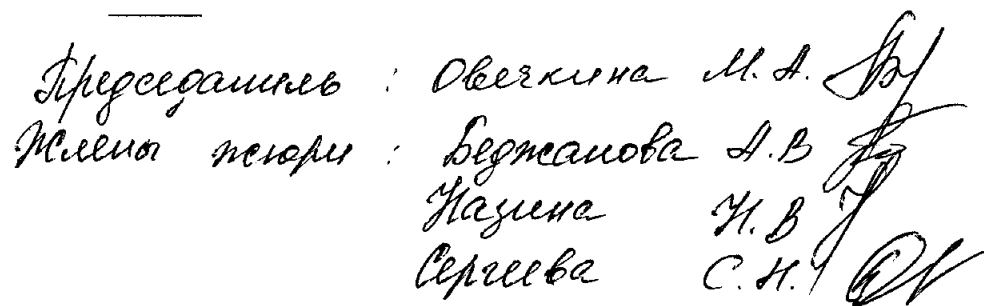 Председатель : Овечкина М.А.
Члены жюри : Беджанова А.В
Назина Н.В
Сергеева С.Н.